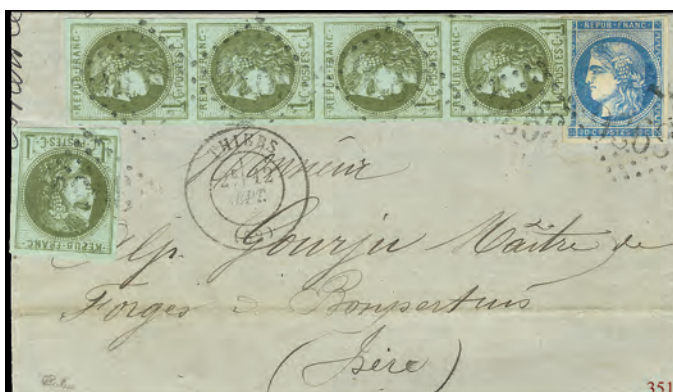 REPUB·FRANC·
1 POSTES·C·1
REPUB·FRANC·
1 POSTES·C·1
REPUB·FRANC·
1 POSTES·C·1
REPUB·FRANC·
1 POSTES·C·1
REPUB·FRANC·
20 C·POSTES·20 C
1 POSTES·C·1
REPUB·FRANC·
THIERS
12
SEPT.
Monsieur
Alp. Gourju Maître de
Forges à Bonpertuis
(Isère)
351